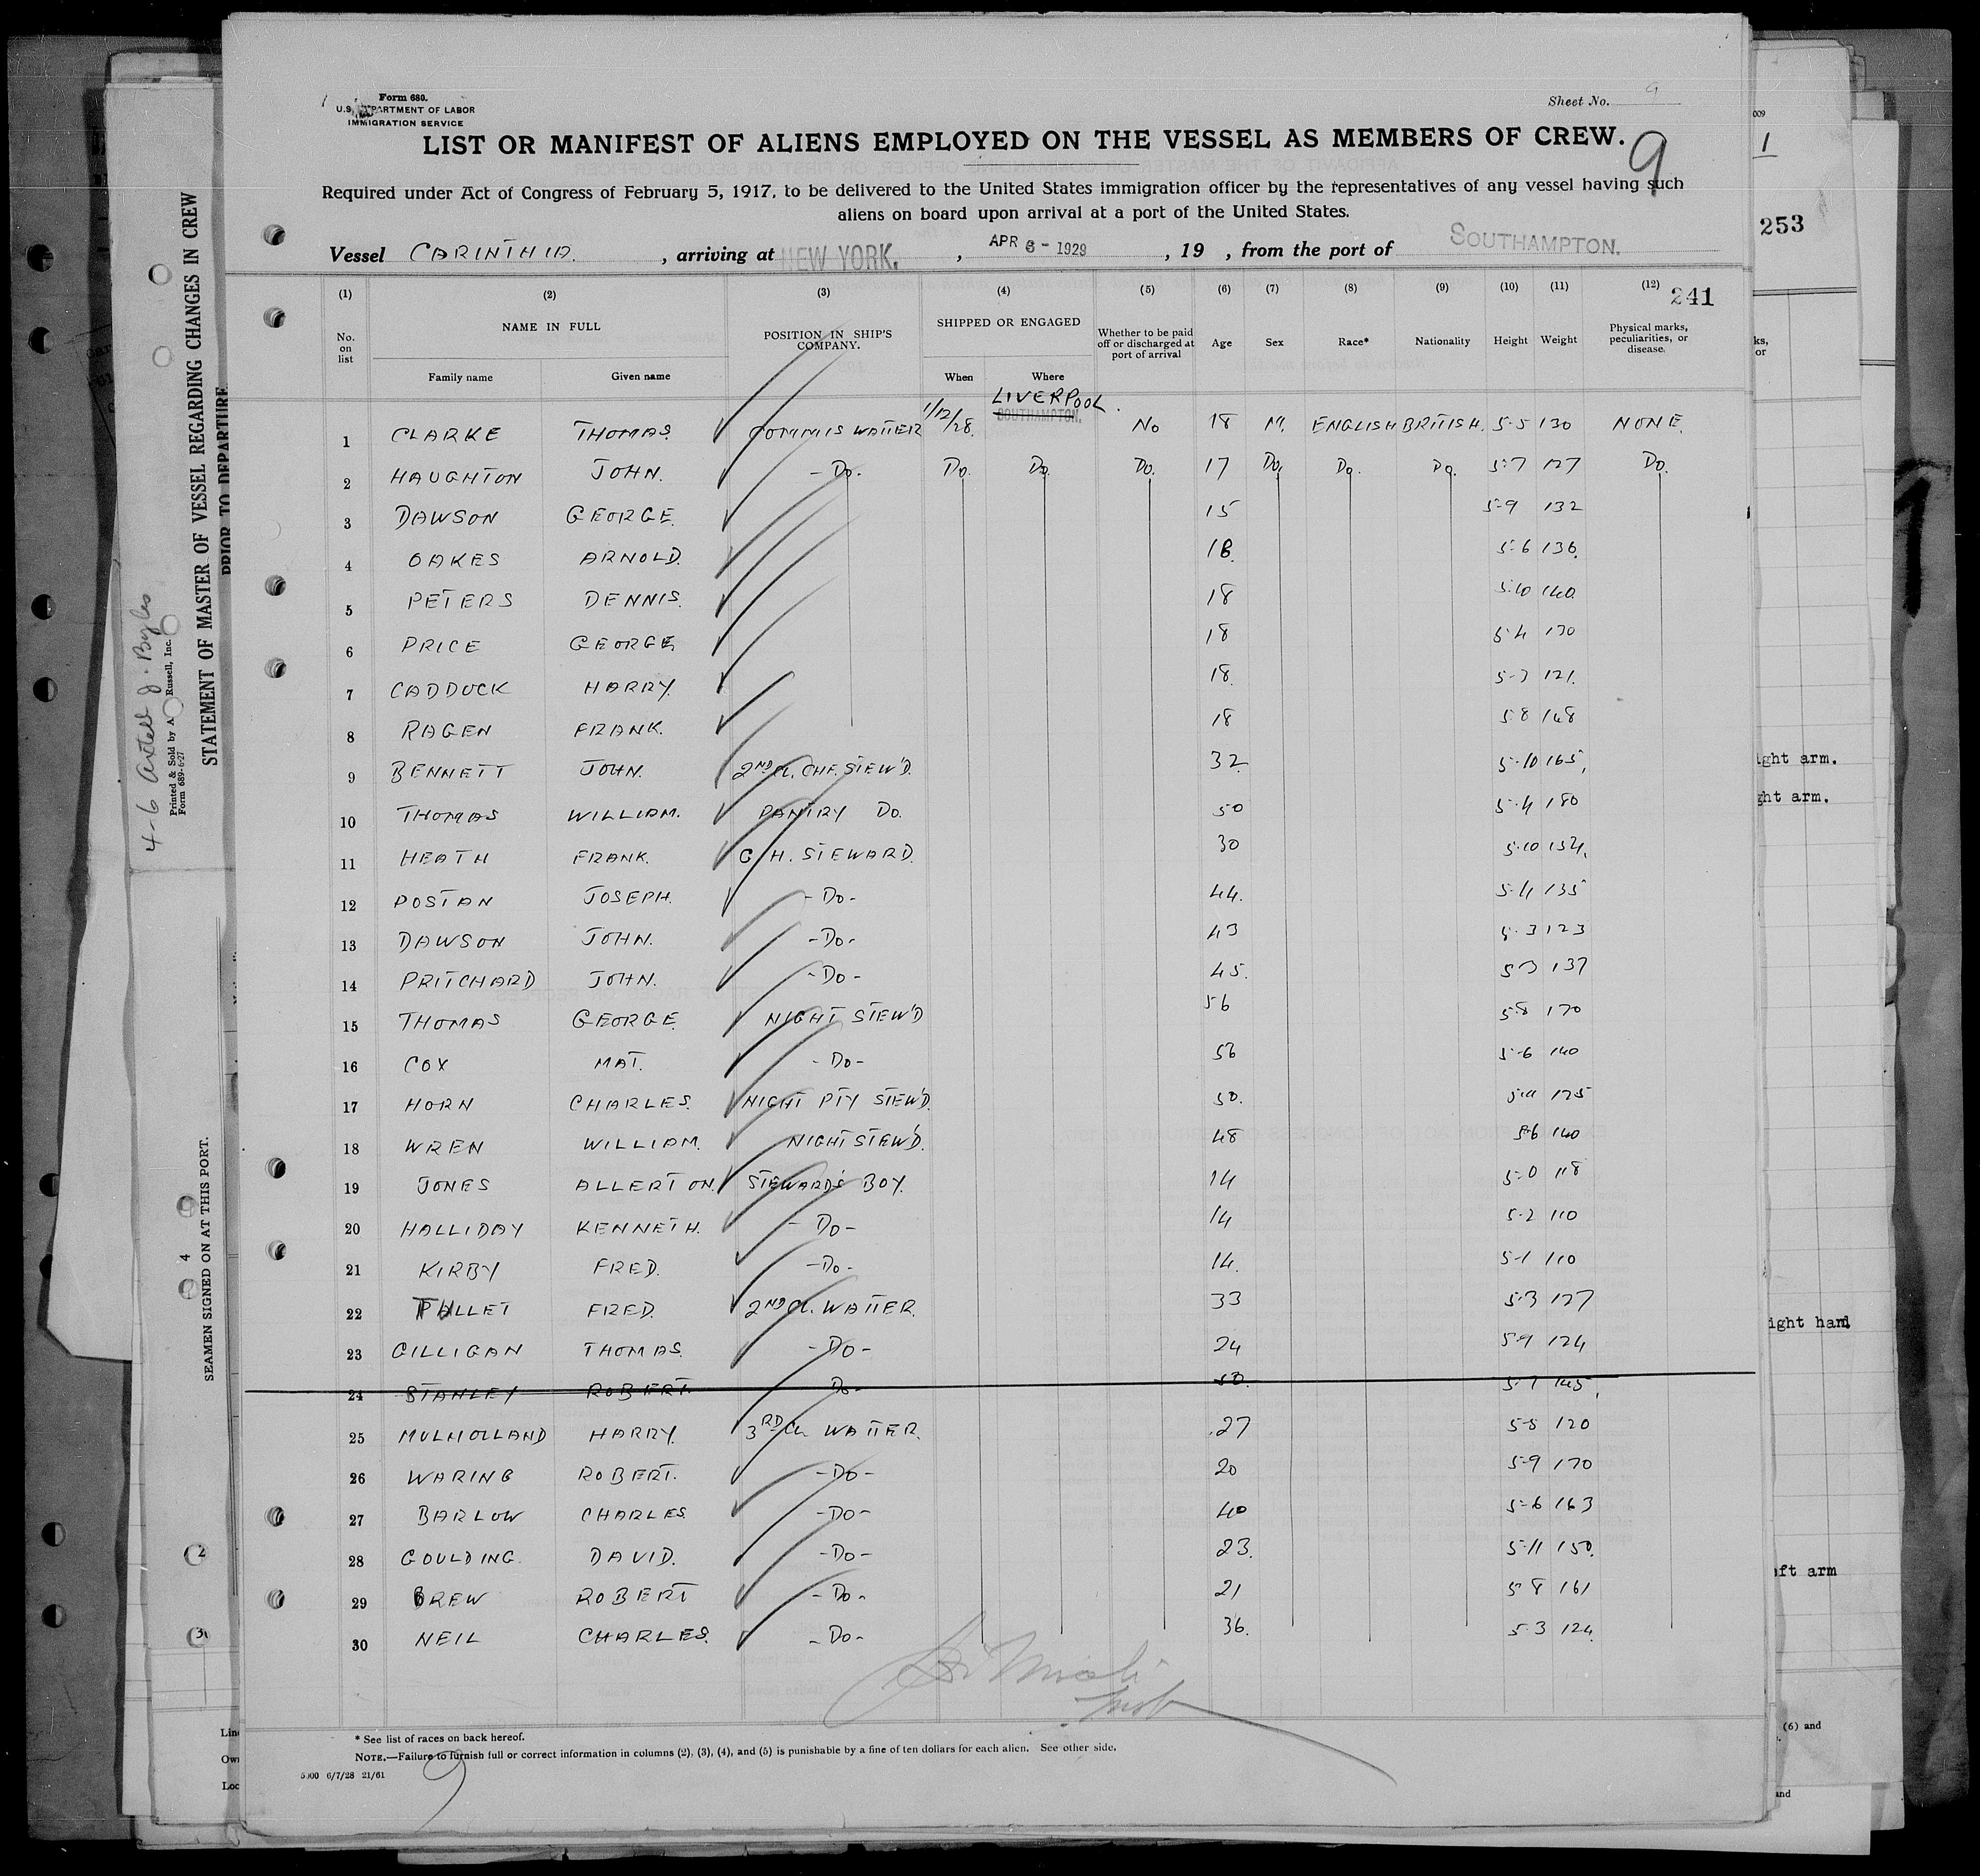 Form 680.
U.S. DEPARTMENT OF LABOR
IMMIGRATION SERVICE
Sheet No. 9
LIST OR MANIFEST OF ALIENS EMPLOYED ON THE VESSEL AS MEMBERS OF CREW.
9
Required under Act of Congress of February 5, 1917, to be delivered to the United States immigration officer by the representatives of any vessel having such
aliens on board upon arrival at a port of the United States.
Vessel CARINTHIA. , arriving at NEW YORK. , APR 6 - 1929 , 19 , from the port of SOUTHAMPTON.
241
(1) (2) (3) (4) (5) (6) (7) (8) (9) (10) (11) (12)
No. on list NAME IN FULL POSITION IN SHIP'S COMPANY. SHIPPED OR ENGAGED Whether to be paid off or discharged at port of arrival Age Sex Race* Nationality Height Weight Physical marks, peculiarities, or disease.
Family name Given name When Where
LIVERPOOL.
SOUTHAMPTON.
1 CLARKE THOMAS. COMMIS WAITER 1/12/28. No 18 M. ENGLISH BRITISH. 5-5 130 NONE.
2 HAUGHTON JOHN. - Do. Do. Do. Do. 17 Do. Do. Do. 5-7 127 Do.
3 DAWSON GEORGE. 15 5-9 132
4 OAKES ARNOLD. 18. 5-6 136.
5 PETERS DENNIS. 18 5-10 140.
6 PRICE GEORGE 18 5-4 130
7 CADDUCK HARRY. 18. 5-7 121.
8 RAGEN FRANK. 18 5-8 148
9 BENNETT JOHN. 2ND Cl. CHF. STEW'D. 32. 5-10 165.
10 THOMAS WILLIAM. PANTRY Do. 50 5-4 180
11 HEATH FRANK. G/H. STEWARD. 30 5-10 154.
12 POSTAN JOSEPH. - Do - 44. 5-4 135
13 DAWSON JOHN. - Do - 43 5-3 123
14 PRITCHARD JOHN. - Do - 45. 5-7 137
15 THOMAS GEORGE. NIGHT STEW'D 56 5-8 170
16 COX MAT. - Do - 56 5-6 140
17 HORN CHARLES. NIGHT PTY STEW'D. 50. 5-11 175
18 WREN WILLIAM. NIGHT STEW'D. 48 5-6 140
19 JONES ALLERTON. STEWARD'S BOY. 14 5-0 118
20 HALLIDAY KENNETH. - Do - 14 5-2 110
21 KIRBY FRED. - Do - 14. 5-1 110
22 TULLET FRED. 2ND Cl. WAITER. 33 5-3 127
23 GILLIGAN THOMAS. - Do - 24 5-9 124
24 STANLEY ROBERT. Do - 50. 5-7 145.
25 MULHOLLAND HARRY. 3RD Cl. WAITER. 27 5-5 120
26 WARING ROBERT. - Do - 20 5-9 170
27 BARLOW CHARLES - Do - 40 5-6 163
28 GOULDING. DAVID. - Do - 23. 5-11 150.
29 DREW ROBERT - Do - 21 5-8 161
30 NEIL CHARLES. - Do - 36. 5-3 124.
* See list of races on back hereof.
NOTE.—Failure to furnish full or correct information in columns (2), (3), (4), and (5) is punishable by a fine of ten dollars for each alien. See other side.
6/7/28 21/61
9
STATEMENT OF MASTER OF VESSEL REGARDING CHANGES IN CREW
PRIOR TO DEPARTURE
Russell, Inc.
Printed & Sold by A
Form 689-6-27
SEAMEN SIGNED ON AT THIS PORT.
4
1
253
ight arm.
ght arm.
ight hand
eft arm
(6) and
and